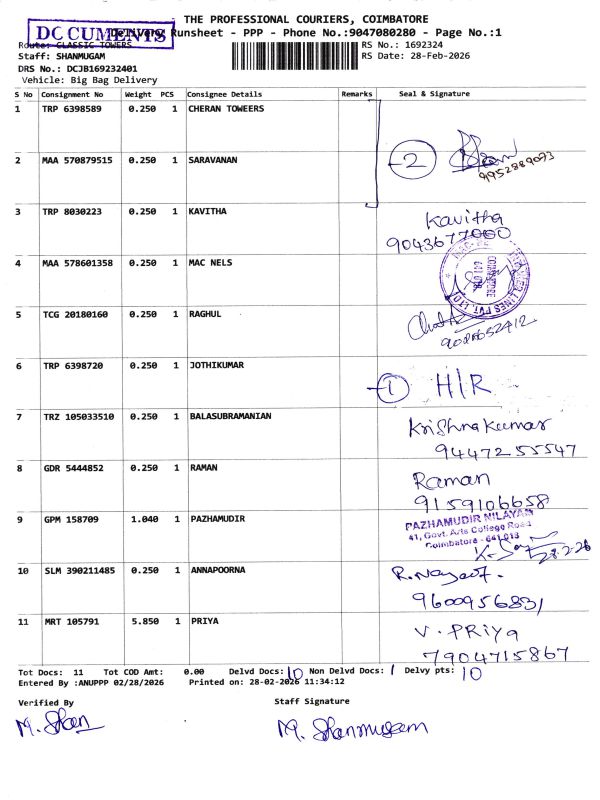 THE PROFESSIONAL COURIERS, COIMBATORE
DOCUMENTS
Delivery Runsheet - PPP - Phone No.:9047080280 - Page No.:1
Route: CLASSIC TOWERS
RS No.: 1692324
Staff: SHANMUGAM
RS Date: 28-Feb-2026
DRS No.: DCJB169232401
Vehicle: Big Bag Delivery
S No Consignment No Weight PCS Consignee Details Remarks Seal & Signature
1 TRP 6398589 0.250 1 CHERAN TOWEERS
2 MAA 570879515 0.250 1 SARAVANAN
2
9952889093
3 TRP 8030223 0.250 1 KAVITHA
Kavitha
9043677000
4 MAA 578601358 0.250 1 MAC NELS
LINES PVT. LTD.
COIMBATORE
641 018
5 TCG 20180160 0.250 1 RAGHUL
6 TRP 6398720 0.250 1 JOTHIKUMAR
1 H/R
7 TRZ 105033510 0.250 1 BALASUBRAMANIAN
Krishna Kumar
9447255547
8 GDR 5444852 0.250 1 RAMAN
Raman
9159106658
9 GPM 158709 1.040 1 PAZHAMUDIR
PAZHAMUDIR NILAYAM
41, Govt. Arts College Road
Coimbatore - 641 018
28-2-26
10 SLM 390211485 0.250 1 ANNAPOORNA
9600956831
11 MRT 105791 5.850 1 PRIYA
V. PRIYA
7904715867
Tot Docs: 11 Tot COD Amt: 0.00 Delvd Docs: 10 Non Delvd Docs: 1 Delvy pts: 10
Entered By :ANUPPP 02/28/2026 Printed on: 28-02-2026 11:34:12
Verified By Staff Signature
M. Shan M. Shanmugam